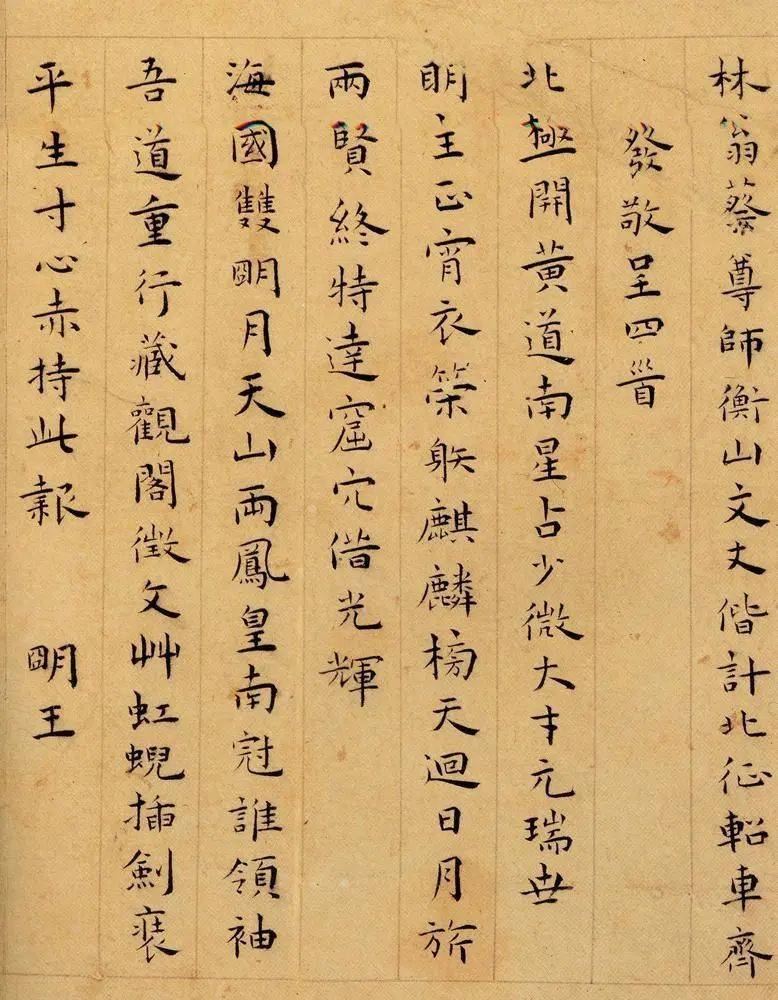 林翁蔡尊師衡山文丈偕計北征軺車齊
發敬呈四首
北極開黃道南星占少微大才元瑞世
明主正宵衣榮躾麒麟榜天迴日月旂
兩賢終特達窟穴偕光輝
海國雙明月天山兩鳳皇南冠誰領袖
吾道重行藏觀閣徵文艸虹蜺插劍裝
平生寸心赤持此報 明王